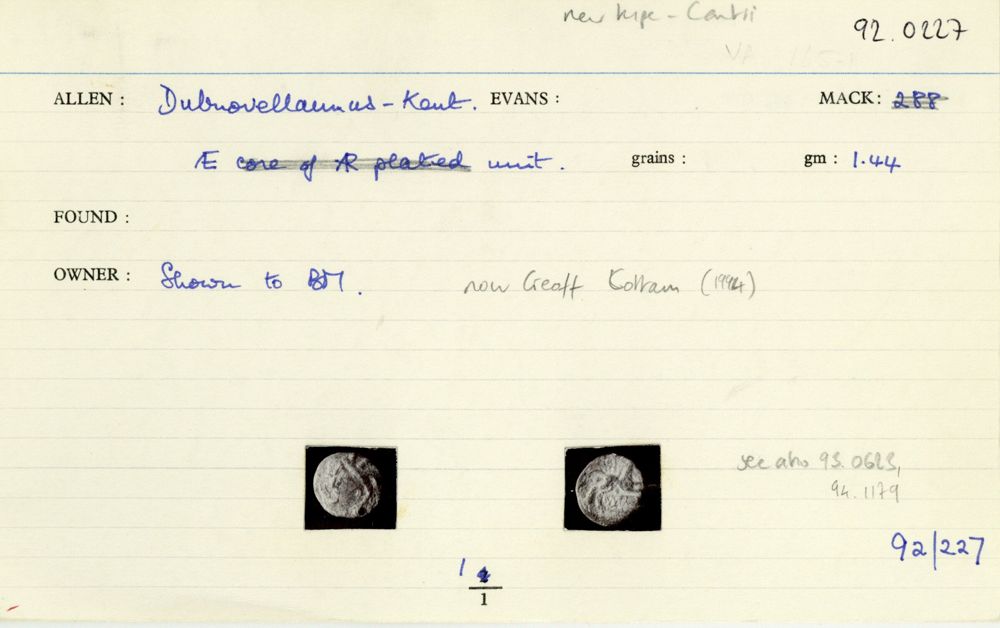 new type - Cantii
92.0227
ALLEN : Dubnovellaunus - Kent. EVANS : MACK: 288
Æ core of AR plated unit. grains : gm : 1.44
FOUND :
OWNER : Shown to BM. now Geoff Cottam (1994)
see also 93.0623,
94.1179
92/227
1
1